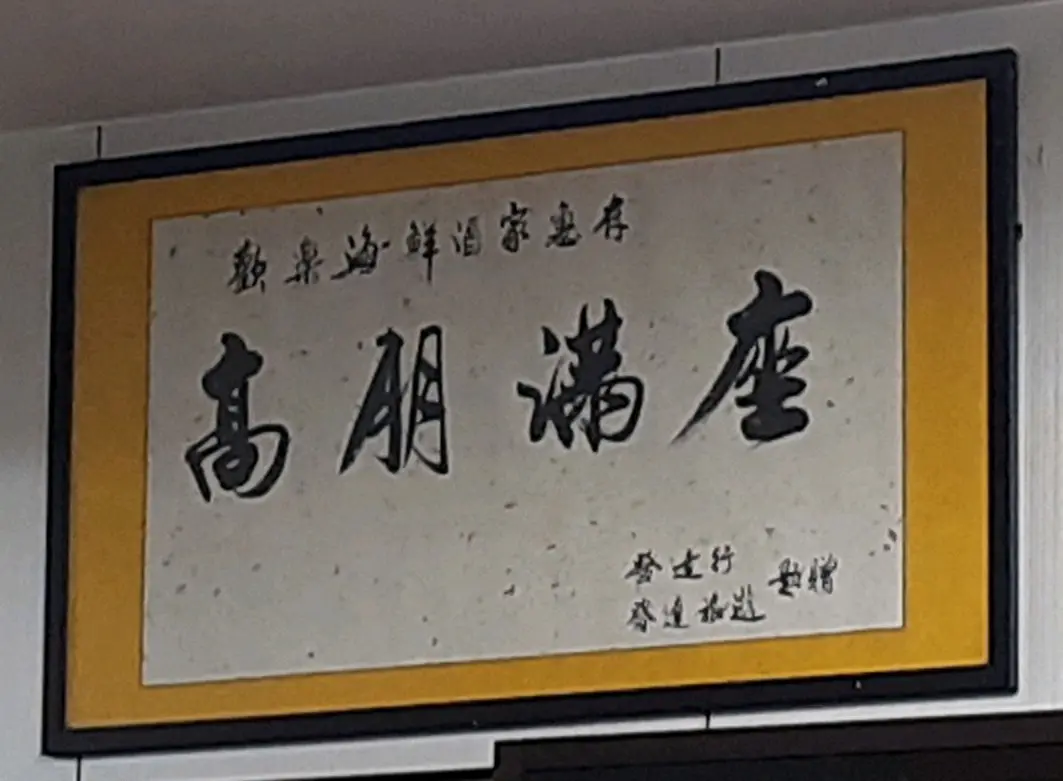 歡樂海鮮酒家惠存
高朋滿座
發達行
發達旅遊 敬贈